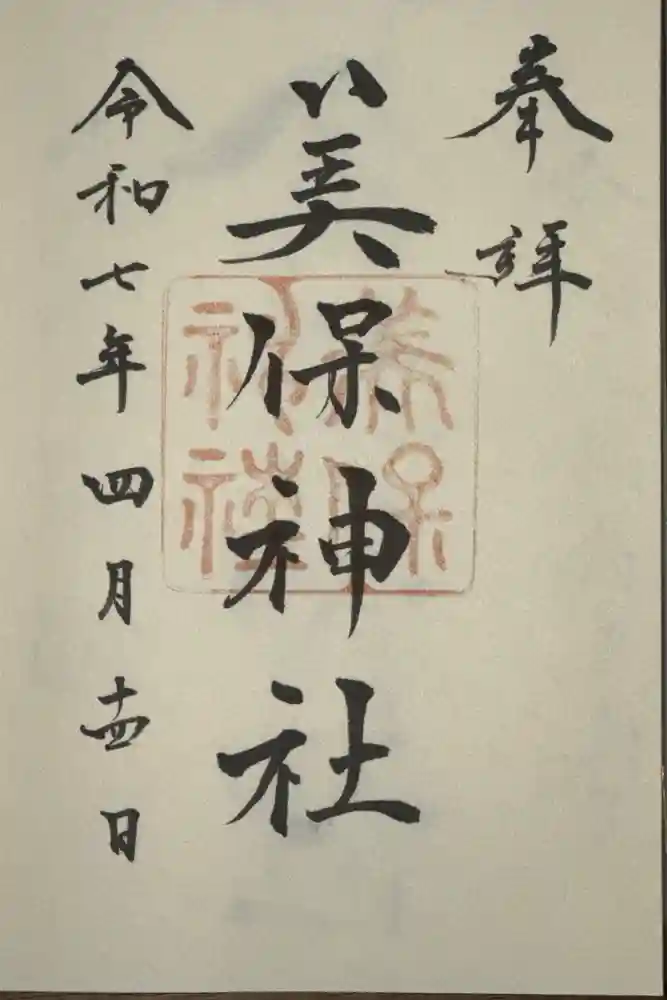 奉拝
美保神社
令和七年四月十四日
美保
神社